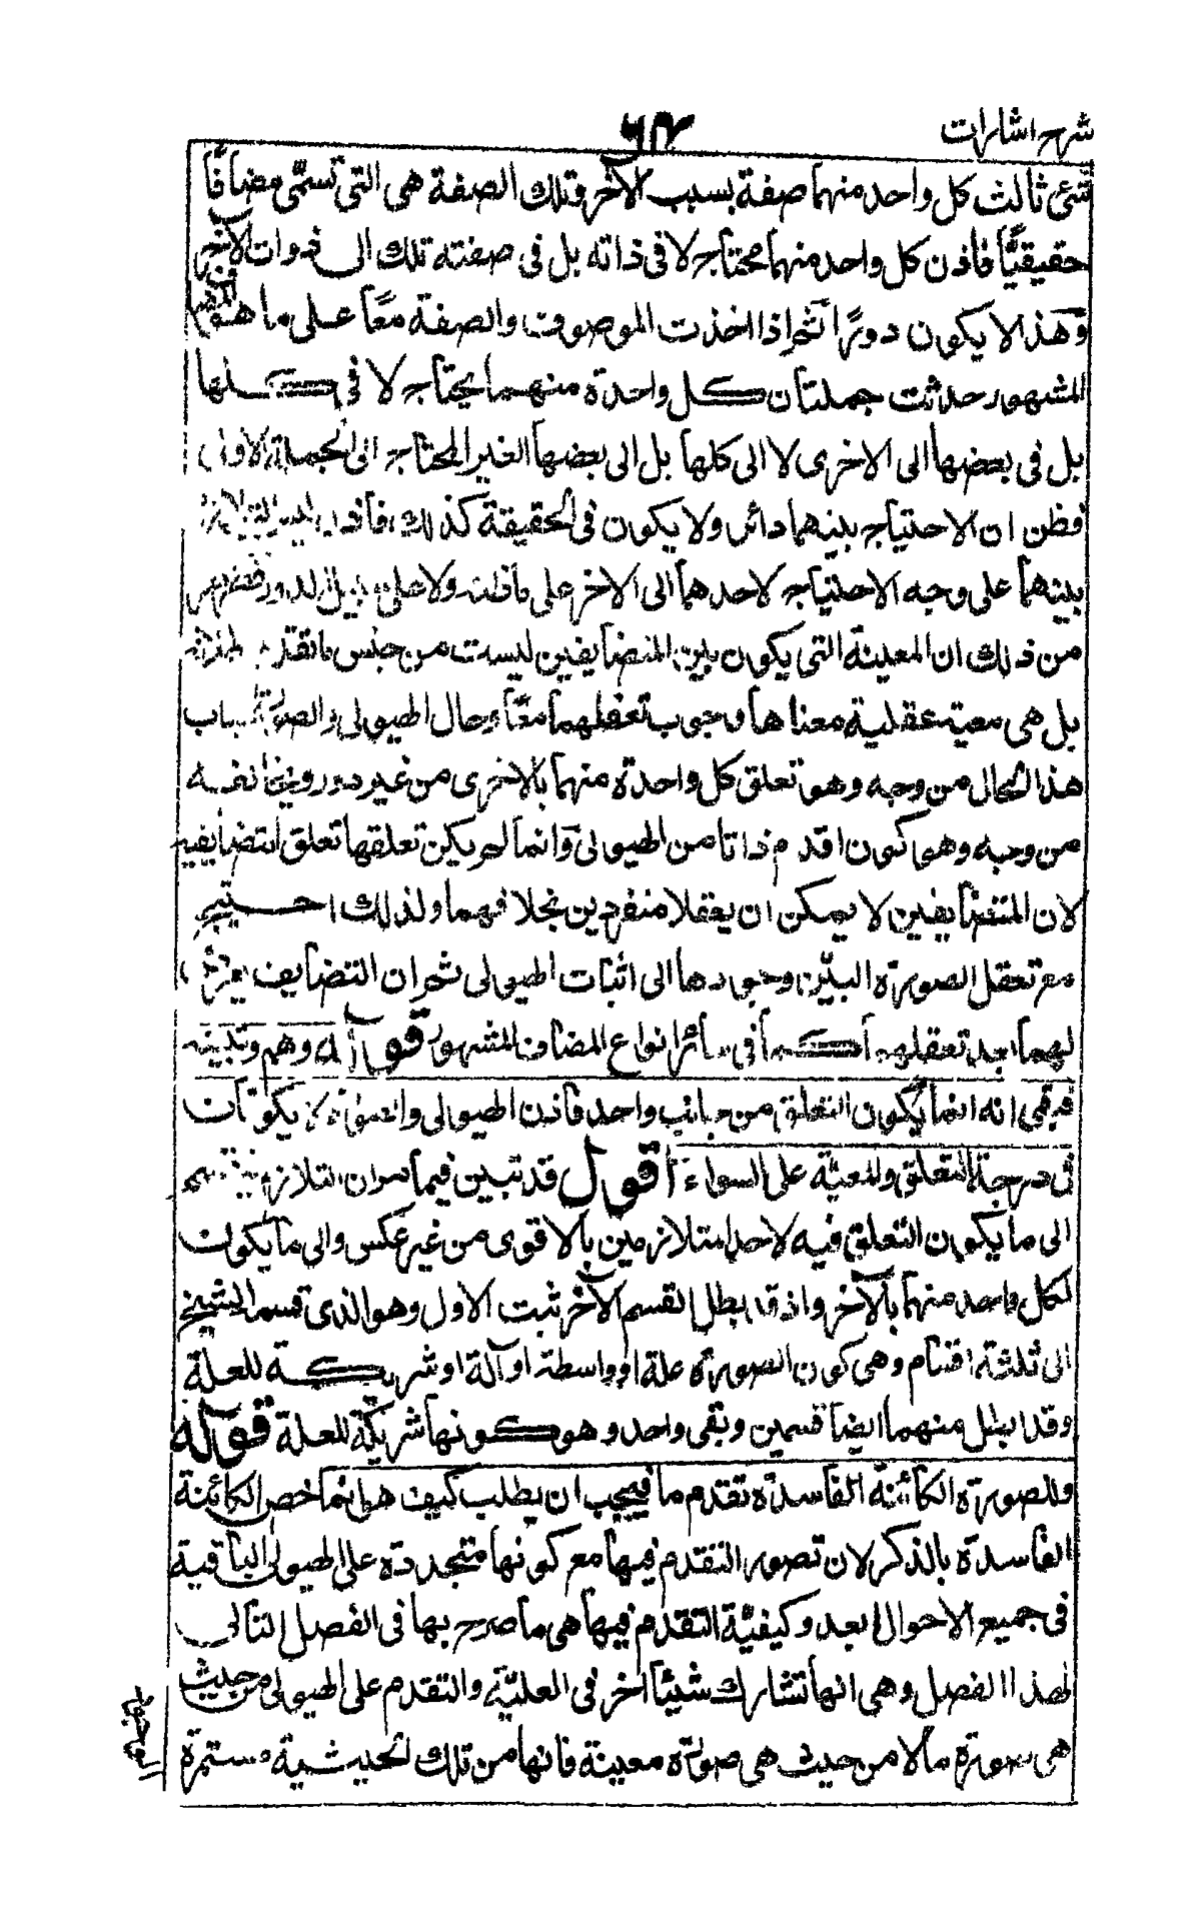 شرح اشارات
شئ ثالث كل واحد منهما صفة بسبب الآخر وتلك الصفة هى التى تسمى مضافًا
حقيقيًّا فاذن كل واحد منهما محتاج لا فى ذاته بل فى صفته تلك الى ذوات الآخر
وهذا لا يكون دورًا ثم اذا اخذت الموصوف والصفة معًا على ما هو
المشهور حدثت جملتان كل واحدة منهما يحتاج لا فى كلها
بل فى بعضها الى الاخرى لا الى كلها بل الى بعضها الغير المحتاج الى الجملة الاولى
فظن ان الاحتياج بينهما دائر ولا يكون فى الحقيقة كذلك فاذن ليس
بينهما على وجه الاحتياج لاحدهما الى الاخر على ما ظنه ولا على سبيل الدور فظهر
من ذلك ان المعية التى يكون بين المتضايفين ليست من جنس ما تقدم
بل هى معية عقلية معناها وجوب تعقلهما معًا وحال الهيولى والصورة
هذا الحال من وجه وهو تعلق كل واحدة منهما بالاخرى من غير دور
من وجه وهو كون اقدم ذاتا من الهيولى وانما لم يكن تعلقها تعلق المتضايفين
لان المتضايفين لا يمكن ان يعقلا منفردين بخلافهما ولذلك احتيج
مع تعقل الصورة البين وجودها الى اثبات الهيولى ثم ان التضايف يعرض
لهما بعد تعقلهما كما فى سائر انواع المضاف المشهور قوله وهم وتنبيه
فبقى انه انما يكون التعلق من جانب واحد فاذن الهيولى والصورة لا يكونان
فى درجة التعلق والمعية على السواء اقول قد تبين فيما مر ان التلازم
الى ما يكون التعلق فيه لاحد المتلازمين بالاقوى من غير عكس والى ما يكون
لكل واحد منهما بالآخر واذ قد بطل القسم الآخر ثبت الاول وهو الذى قسمه الشيخ
الى ثلثة اقسام وهى كون الصورة علة او واسطة او آلة او شريكة للعلة
وقد ابطل منهما ايضا قسمين وبقى واحد وهو كونها شريكة للعلة قوله
وللصورة الكائنة الفاسدة تقدم ما فيجب ان يطلب كيف هو انما خص الكائنة
الفاسدة بالذكر لان تصور التقدم فيها مع كونها متجددة على الهيولى الباقية
فى جميع الاحوال ابعد وكيفية التقدم فيها هى ما صرح بها فى الفصل التالى
لهذا الفصل وهى انها تشارك شيئًا آخر فى العلية والتقدم على الهيولى من حيث
هى صورة ما لا من حيث هى صورة معينة فانها من تلك الحيثية مستمرة